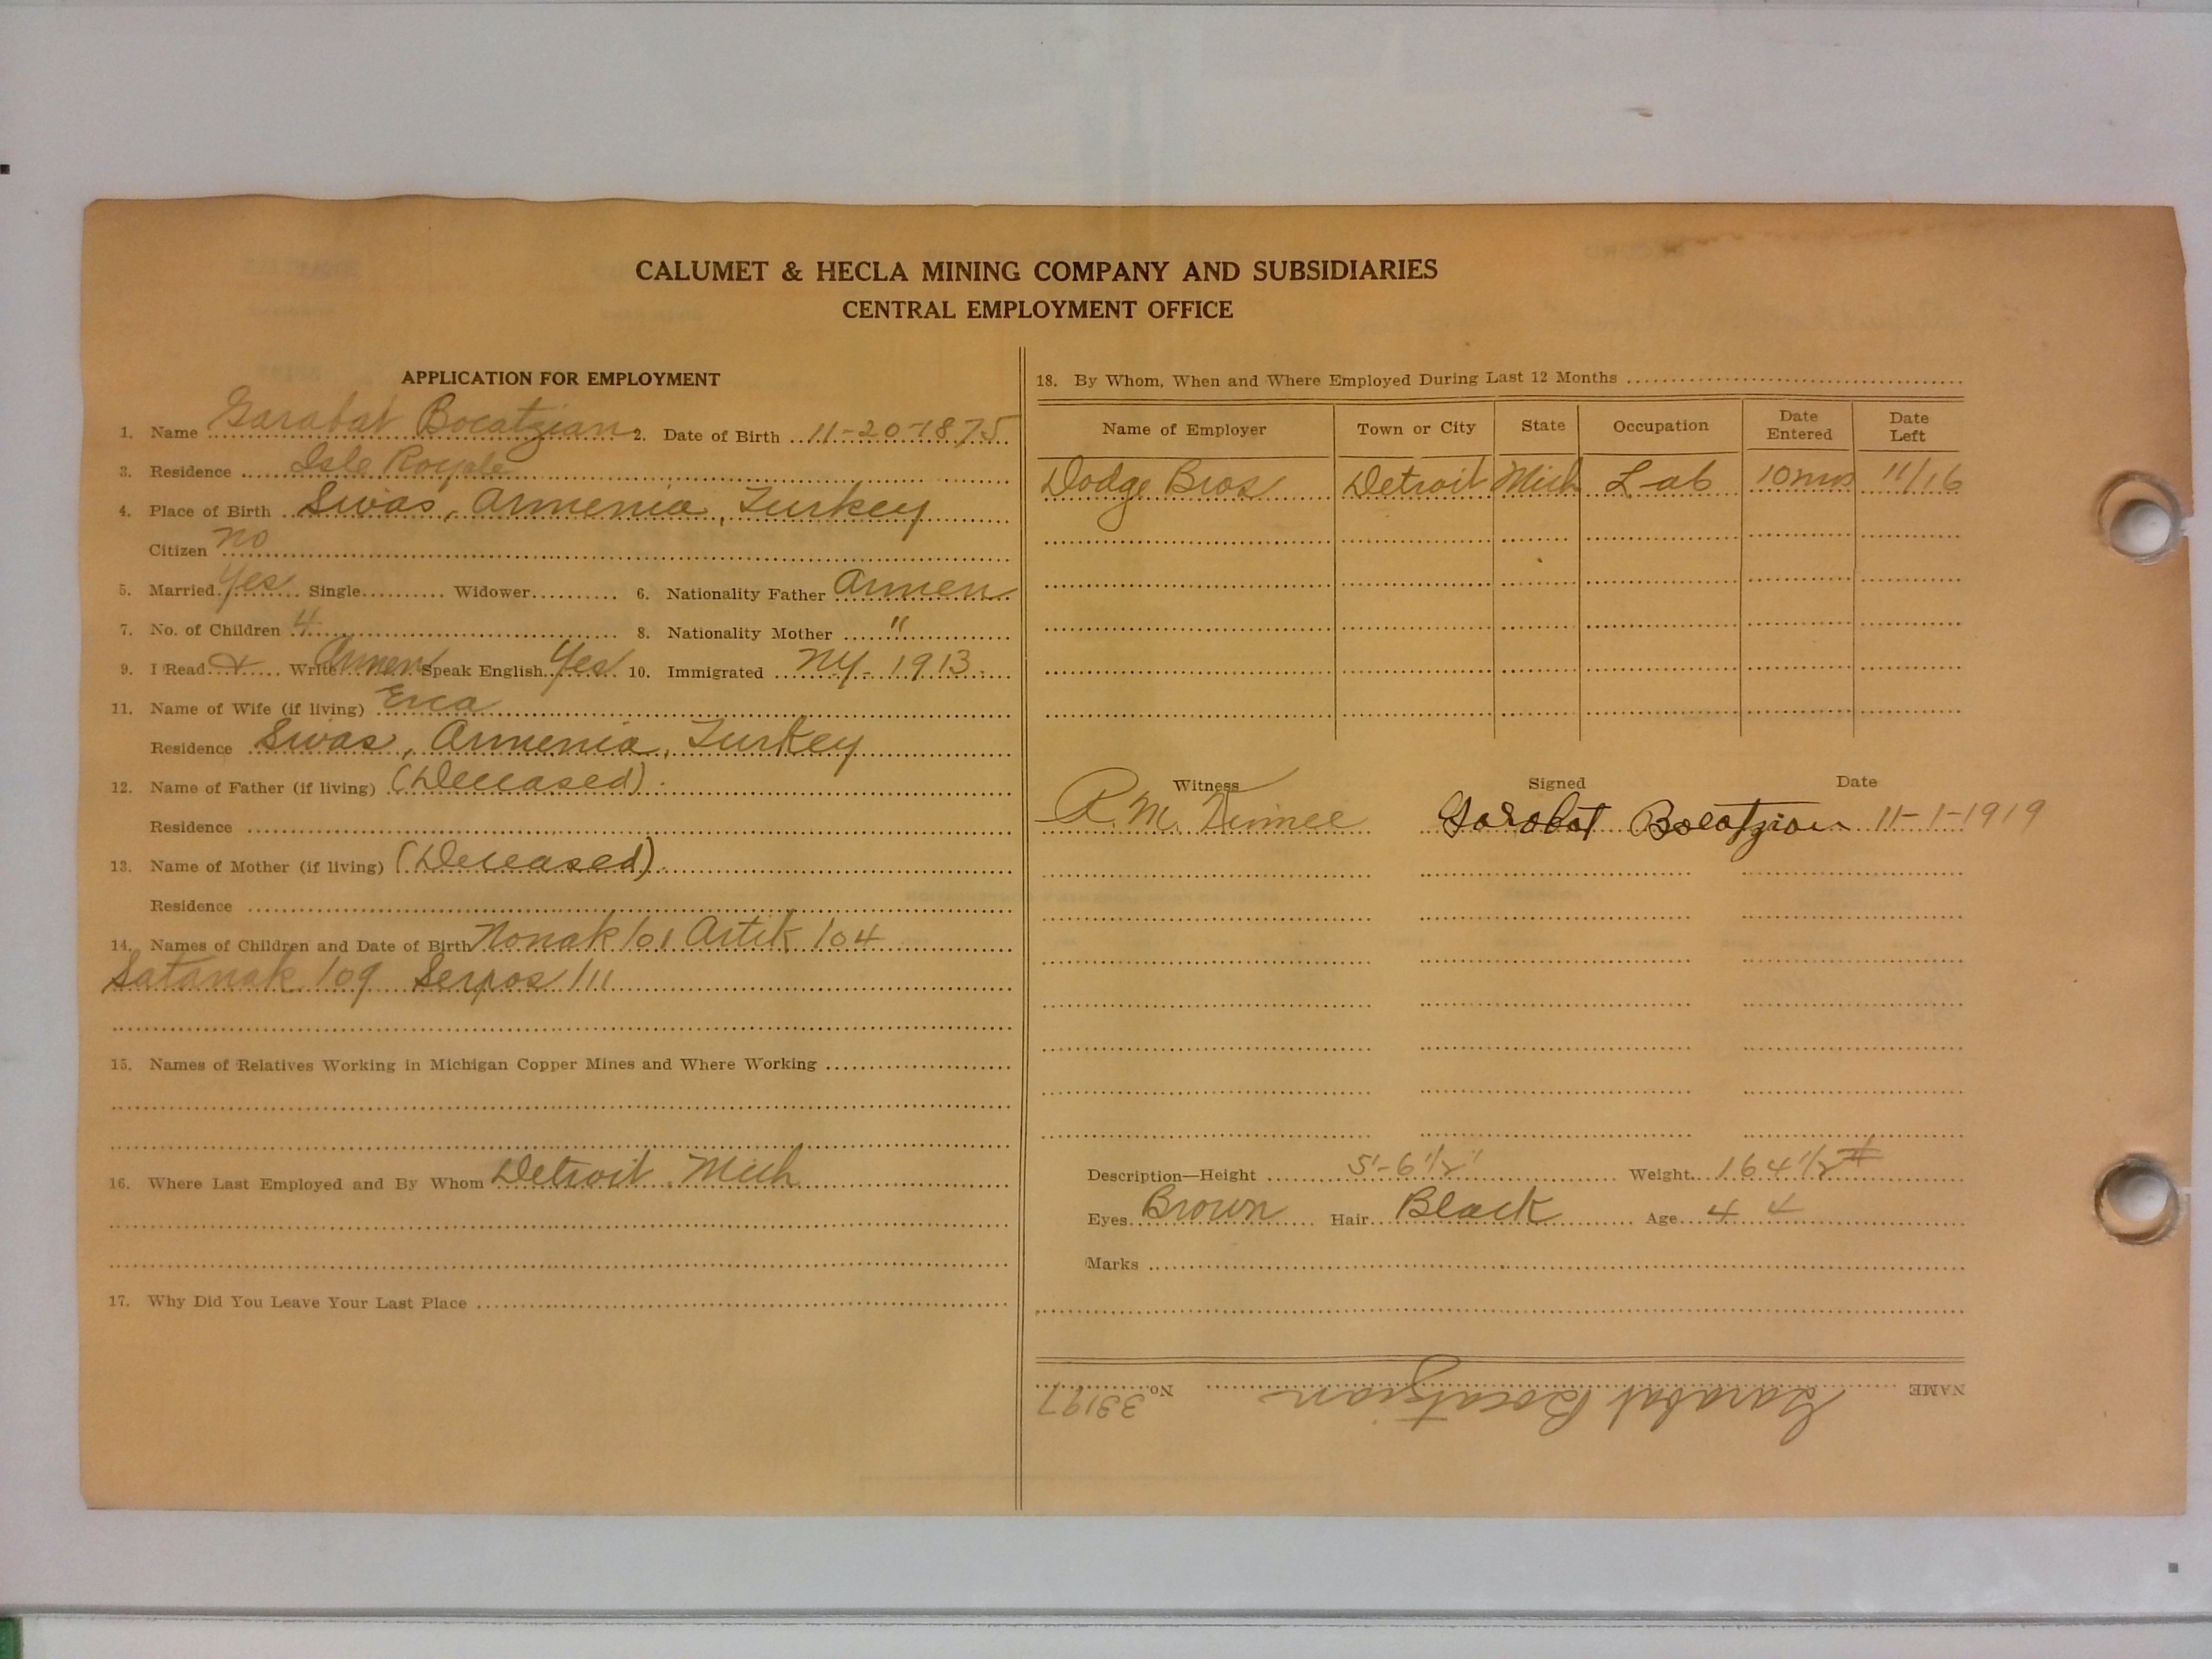 CALUMET & HECLA MINING COMPANY AND SUBSIDIARIES
CENTRAL EMPLOYMENT OFFICE
APPLICATION FOR EMPLOYMENT
1. Name Garabat Bocatzian 2. Date of Birth 11-20-1875
3. Residence Isle Royale
4. Place of Birth Sivas, Armenia, Turkey
Citizen no
5. Married Yes Single Widower 6. Nationality Father Armen
7. No. of Children 4 8. Nationality Mother "
9. I Read & Write Armen Speak English Yes 10. Immigrated NY-1913
11. Name of Wife (if living) Erca
Residence Sivas, Armenia, Turkey
12. Name of Father (if living) (Deceased)
Residence
13. Name of Mother (if living) (Deceased)
Residence
14. Names of Children and Date of Birth Nonak/01 Artik/04
Satanak/09 Serpos/11
15. Names of Relatives Working in Michigan Copper Mines and Where Working
16. Where Last Employed and By Whom Detroit Mich
17. Why Did You Leave Your Last Place
18. By Whom, When and Where Employed During Last 12 Months
Name of Employer Town or City State Occupation Date Entered Date Left
Dodge Bros Detroit Mich Lab 10mos 11/16
Witness Signed Date
R. M. Garabat Bocatzian 11-1-1919
Description—Height 5'-6 1/2" Weight 164 1/2 #
Eyes Brown Hair Black Age 44
Marks
NAME Garabat Bocatzian No. 33197